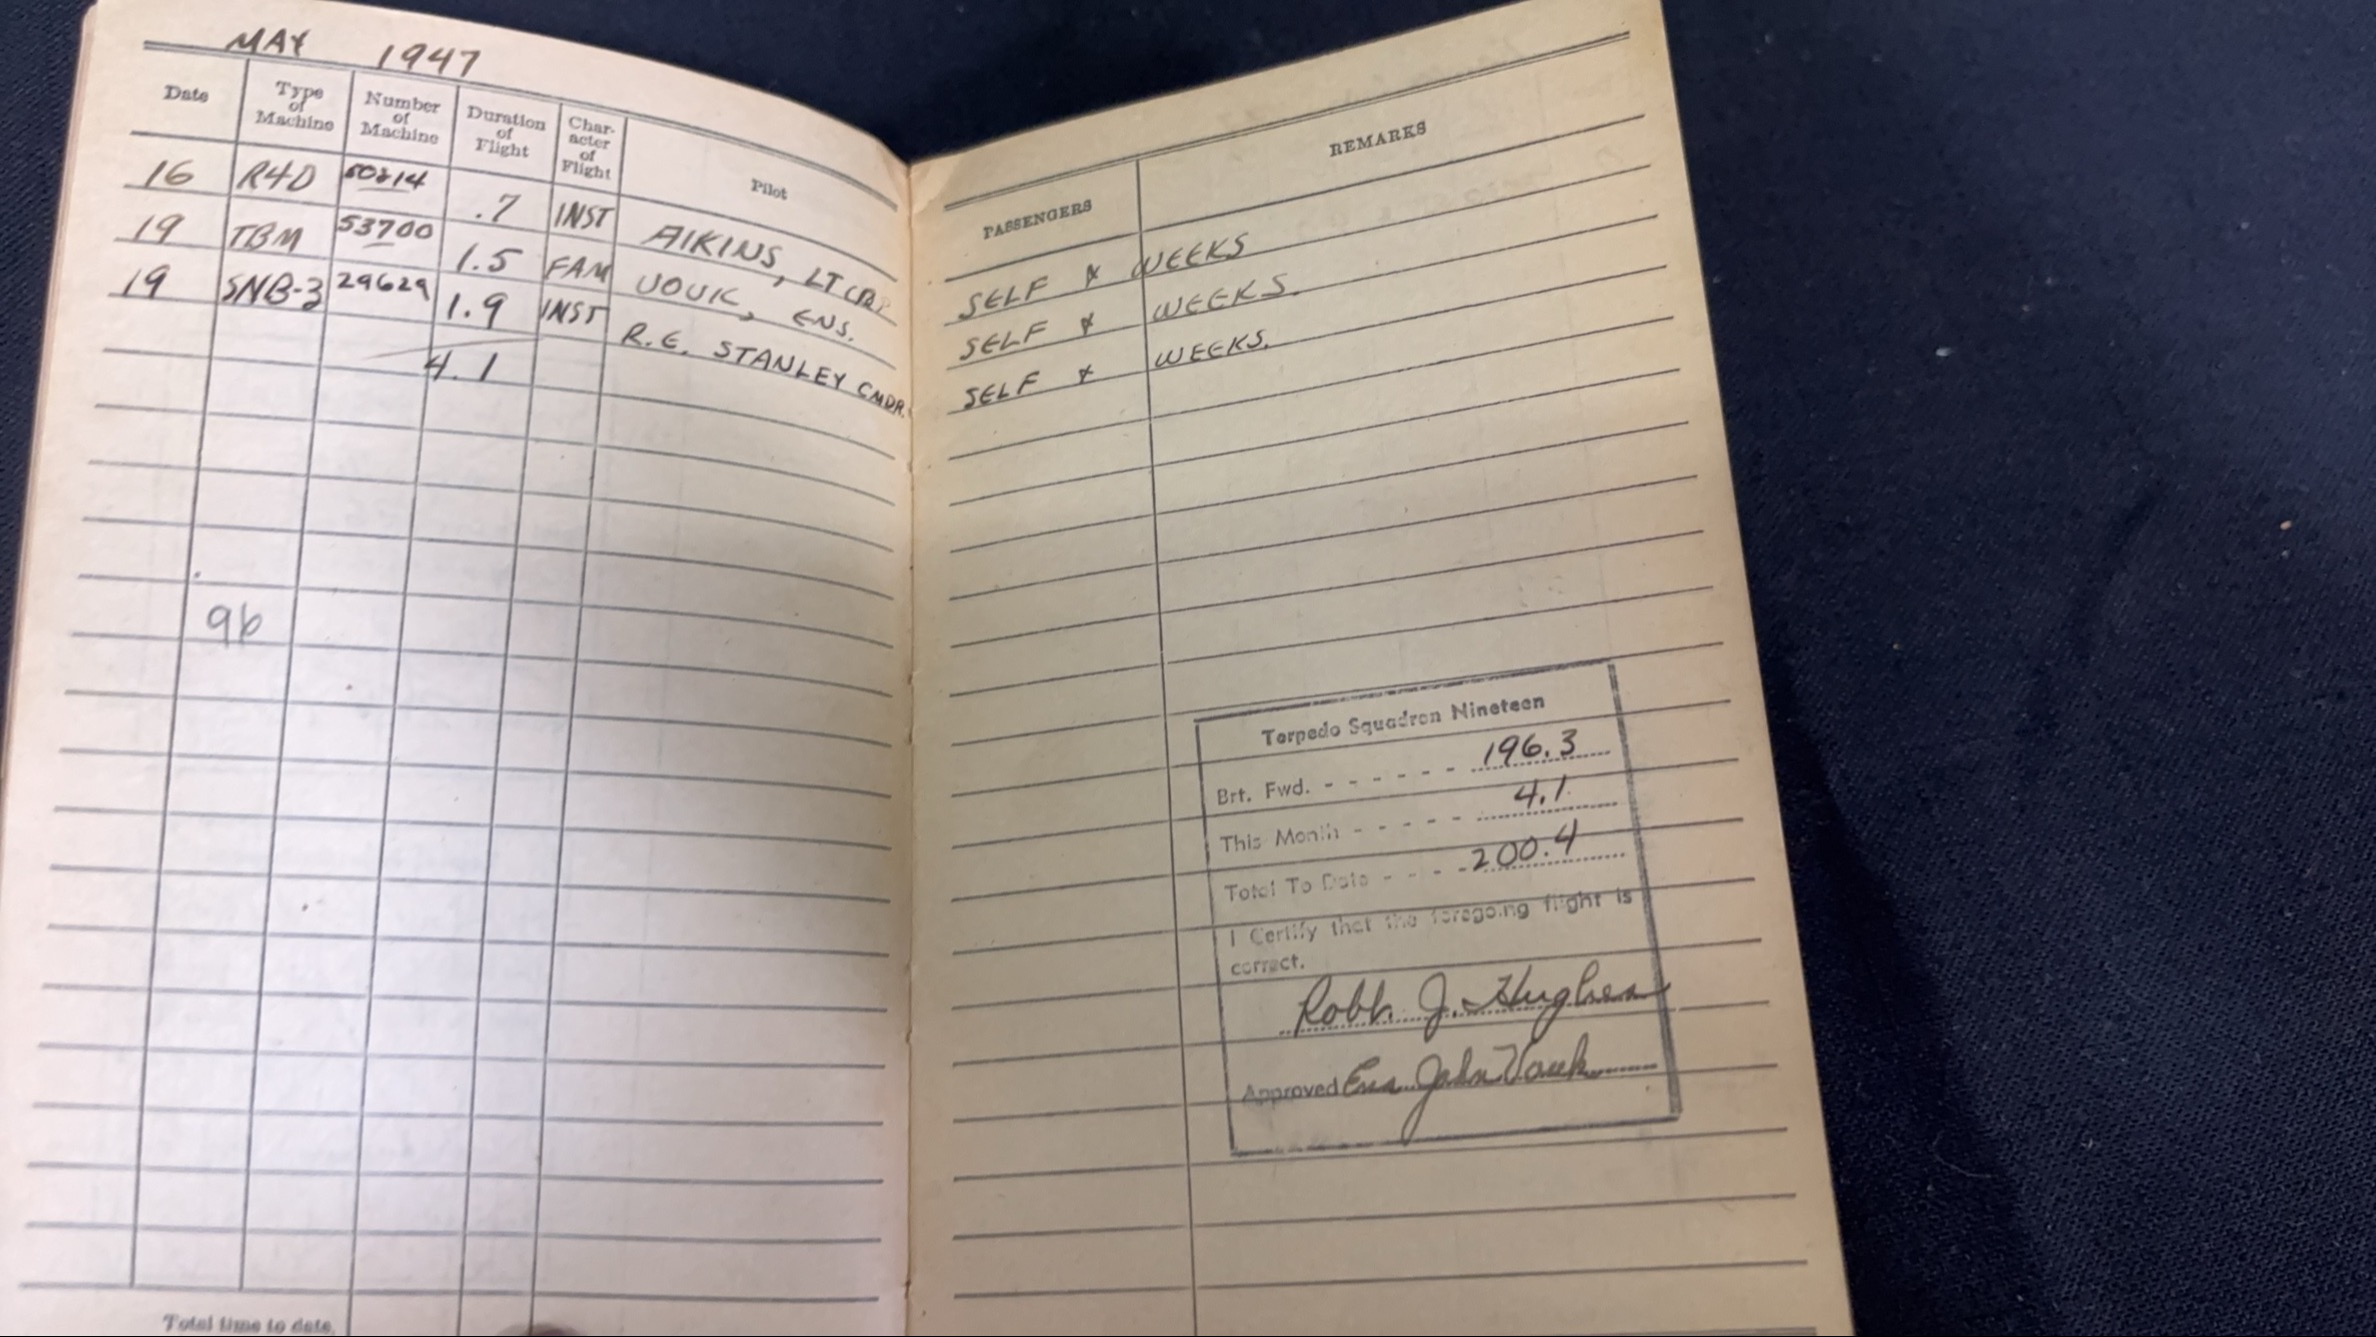 MAY 1947
Date Type of Machine Number of Machine Duration of Flight Char- acter of Flight Pilot
16 R4D 50814 .7 INST AIKINS, LT CDR.
19 TBM 53700 1.5 FAM VOUK, ENS.
19 SNB-3 29629 1.9 INST R.E. STANLEY CMDR.
4.1
96
Total time to date,
PASSENGERS REMARKS
SELF & WEEKS
SELF & WEEKS.
SELF & WEEKS.
Torpedo Squadron Nineteen
Brt. Fwd. - - - - - - 196.3
This Month - - - - - 4.1
Total To Date - - - - 200.4
I Certify that the foregoing flight is
correct.
Robt. J. Hughes
Approved Ens John Vouk